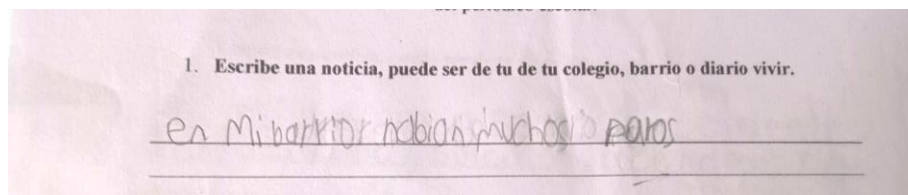 1. Escribe una noticia, puede ser de tu de tu colegio, barrio o diario vivir.
en Mi barrior habian muchos paros